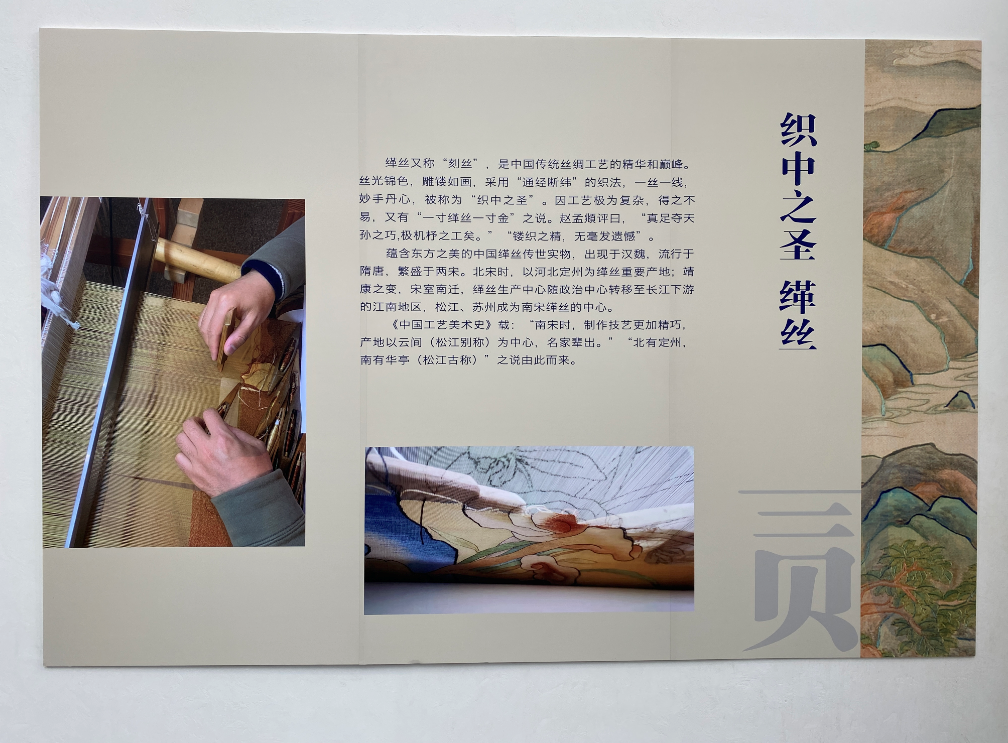 织中之圣 缂丝
缂丝又称“刻丝”，是中国传统丝绸工艺的精华和巅峰。
丝光锦色，雕镂如画，采用“通经断纬”的织法，一丝一线，
妙手丹心，被称为“织中之圣”。因工艺极为复杂，得之不
易，又有“一寸缂丝一寸金”之说。赵孟頫评曰，“真足夺天
孙之巧,极机杼之工矣。”“镂织之精，无毫发遗憾”。
蕴含东方之美的中国缂丝传世实物，出现于汉魏，流行于
隋唐，繁盛于两宋。北宋时，以河北定州为缂丝重要产地；靖
康之变，宋室南迁，缂丝生产中心随政治中心转移至长江下游
的江南地区，松江、苏州成为南宋缂丝的中心。
《中国工艺美术史》载：“南宋时，制作技艺更加精巧，
产地以云间（松江别称）为中心，名家辈出。”“北有定州，
南有华亭（松江古称）”之说由此而来。
贡